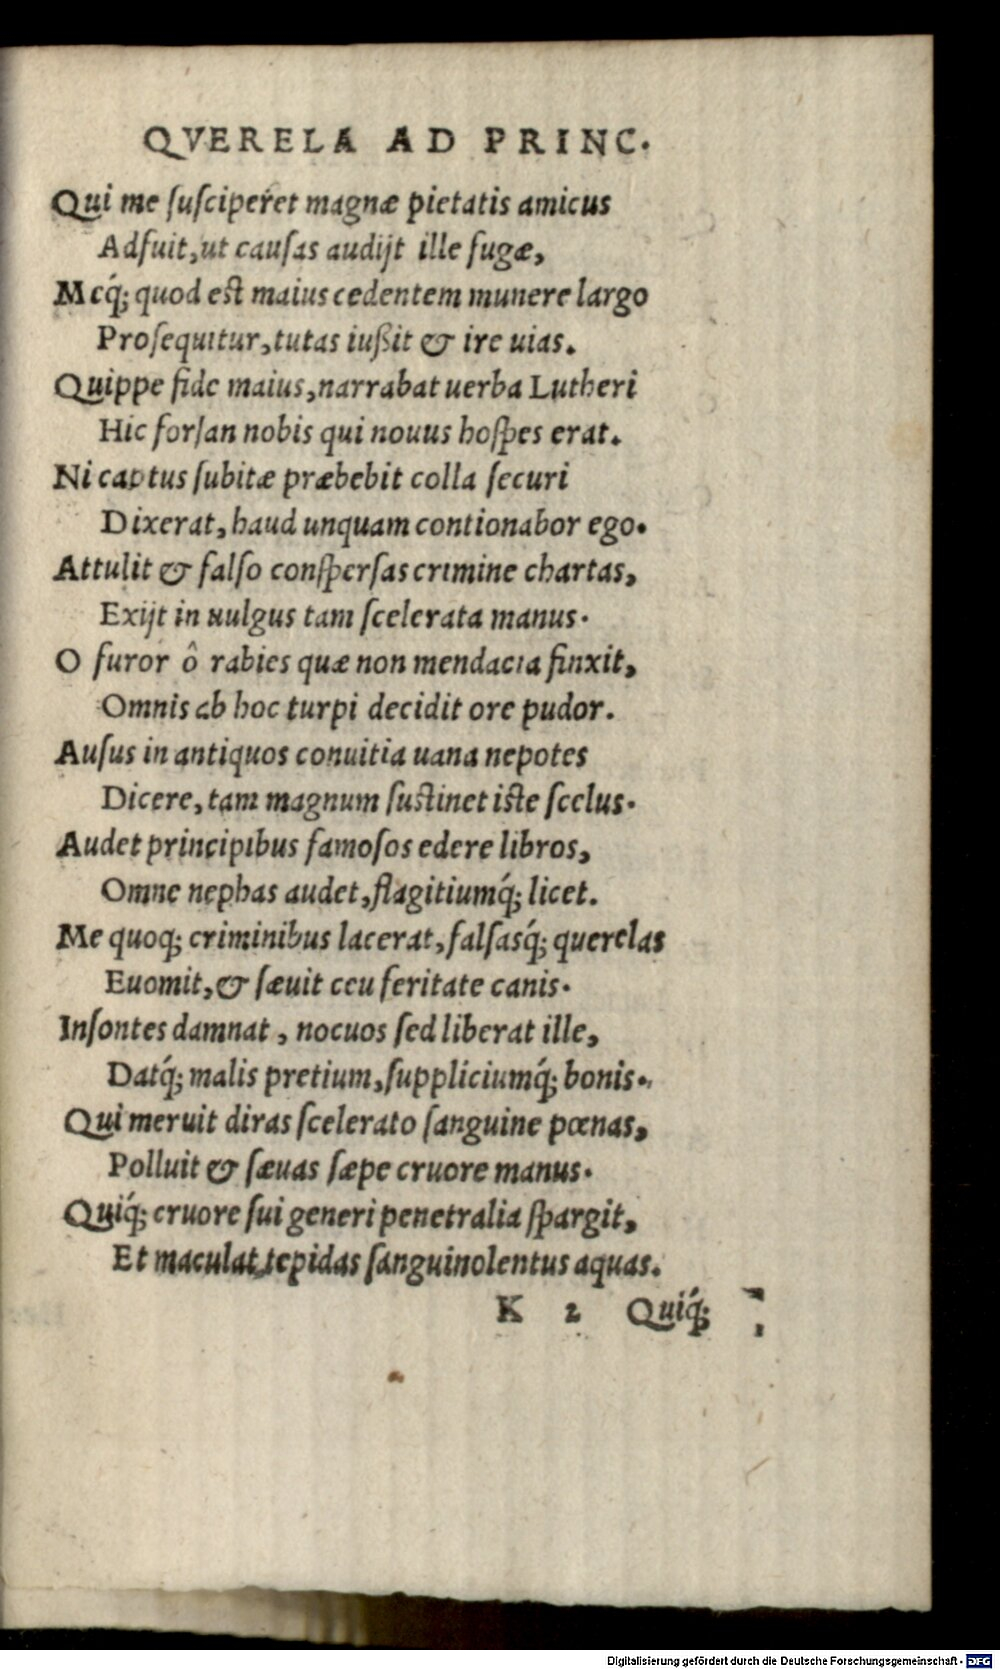 QVERELA AD PRINC.
Qui me susciperet magnæ pietatis amicus
Adfuit, ut causas audijt ille fugæ,
Meq́; quod est maius cedentem munere largo
Prosequitur, tutas iußit & ire uias.
Quippe fide maius, narrabat uerba Lutheri
Hic forsan nobis qui nouus hospes erat.
Ni captus subitæ præbebit colla securi
Dixerat, haud unquam contionabor ego.
Attulit & falso conspersas crimine chartas,
Exijt in uulgus tam scelerata manus.
O furor ô rabies quæ non mendacia finxit,
Omnis ab hoc turpi decidit ore pudor.
Ausus in antiquos conuitia uana nepotes
Dicere, tam magnum sustinet iste scelus.
Audet principibus famosos edere libros,
Omne nephas audet, flagitiumq́; licet.
Me quoq; criminibus lacerat, falsasq́; querelas
Euomit, & sæuit ceu feritate canis.
Insontes damnat, nocuos sed liberat ille,
Datq́; malis pretium, suppliciumq́; bonis.
Qui meruit diras scelerato sanguine pœnas,
Polluit & sæuas sæpe cruore manus.
Quiq́; cruore sui generi penetralia spargit,
Et maculat tepidas sanguinolentus aquas.
K 2 Quiq́;
Digitalisierung gefördert durch die Deutsche Forschungsgemeinschaft - DFG